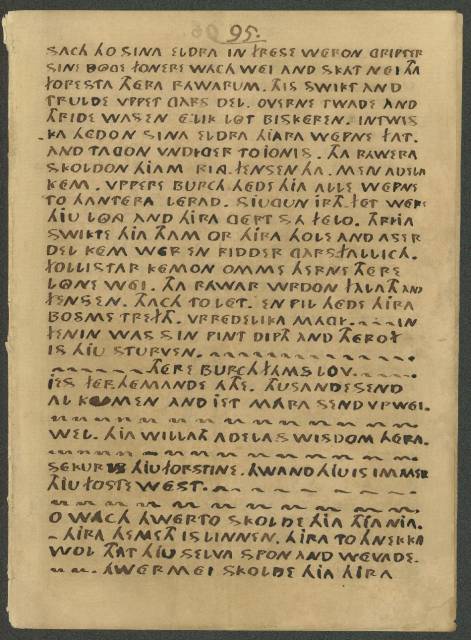 95.
SACH HO SINA ELDRA IN FRESE WERON GRIPTER
SINE BOGE FONERE WACH WEI AND SKAT NEI THA
FORESTA THERA RAWARUM. THIS SWIKT AND
TRULDE VPPET GARS DEL. OVERNE TWADE AND
THRIDE WASEN ELIK LOT BISKEREN. INTWIS
KA HEDON SINA ELDRA HIARA WEPNE FAT.
AND TAGON VNDIGER TO IONIS. THA RAWERA
SKOLDON HIAM RIA FENSEN HA. MEN ADELA
KEM. VPPERE BURCH HEDE HIA ALLE WEPNE
TO HANTERA LERAD. SIUGUN IRTH FET WERE
HIU LONG AND HIRA GERT SA FELO. THRIIA
SWIKTE HIA THAM OR HIRA HOLE AND ASER
DEL KEM WER EN RIDDER GARSFALLICH.
FOLLISTAR KEMON OMME HERNE THERE
LONE WEI. THA RAWAR WRDON FALATH AND
FENSEN. THACH TO LET. EN PIL HEDE HIRA
BOSME TREFTH. VRREDELIKA MAGY. IN
FENIN WAS SIN PINT DIPTH AND THEROF
IS HIU STURVEN.
THERE BURCHFAMS LOV.
IES FERHEMANDE ATHE. THUSANDE SEND
AL KUMEN AND IET MARA SEND VPWEI.
WEL. HIA WILLATH ADELAS WISDOM HERA.
SEKUR IS HIU FORSTINE. HWAND HIU IS IMMER
THIU FOSTE WEST.
O WACH HWERTO SKOLDE HIA THIANIA.
HIRA HEMETH IS LINNEN. HIRA TOHNEKKA
WOL THAT HIU SELVA SPON AND WEVADE.
HWERMEI SKOLDE HIA HIRA